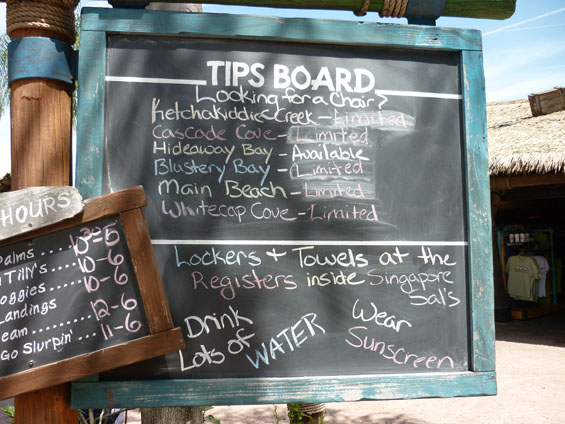 TIPS BOARD
Looking for a Chair?
Ketchakiddie Creek - Limited
Cascade Cove - Limited
Hideaway Bay - Available
Blustery Bay - Limited
Main Beach - Limited
Whitecap Cove - Limited
Lockers + Towels at the
Registers inside Singapore
Sal's
Drink
Lots of WATER
Wear
Sunscreen
HOURS
alms
n Tilly's ..... 10-6
oggies ..... 10-6
Landings ..... 12-6
eam ..... 12-6
Go Slurpin' .... 11-6